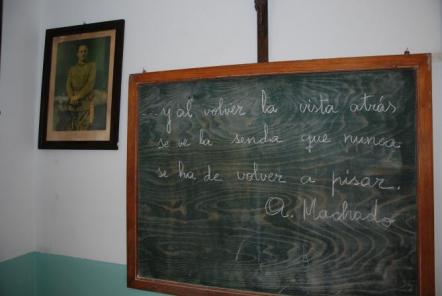 ... y al volver la vista atrás
se ve la senda que nunca
se ha de volver a pisar.
A. Machado